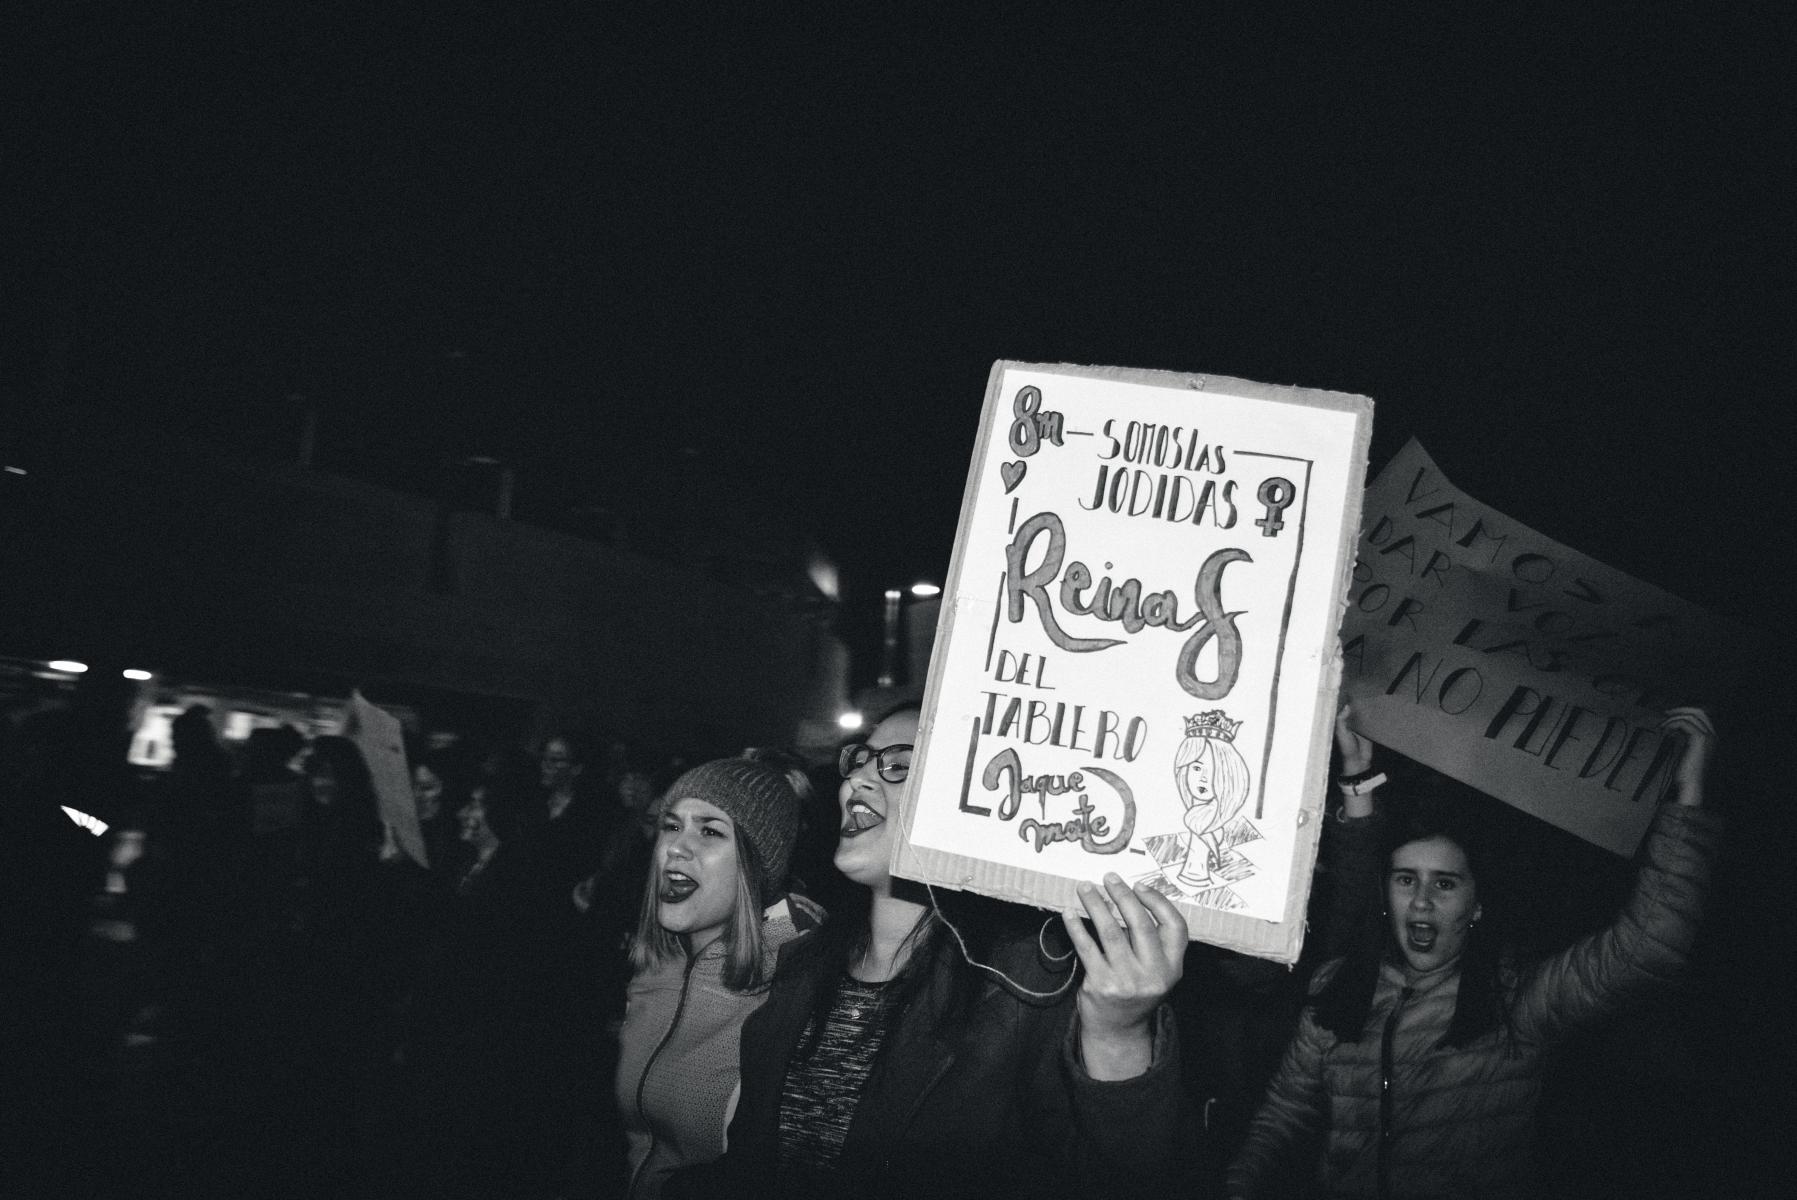 8m
SOMOS LAS
JODIDAS
Reinas
DEL
TABLERO
Jaque
mate
VAMOS A
DAR VOZ
POR LAS QUE
YA NO PUEDEN